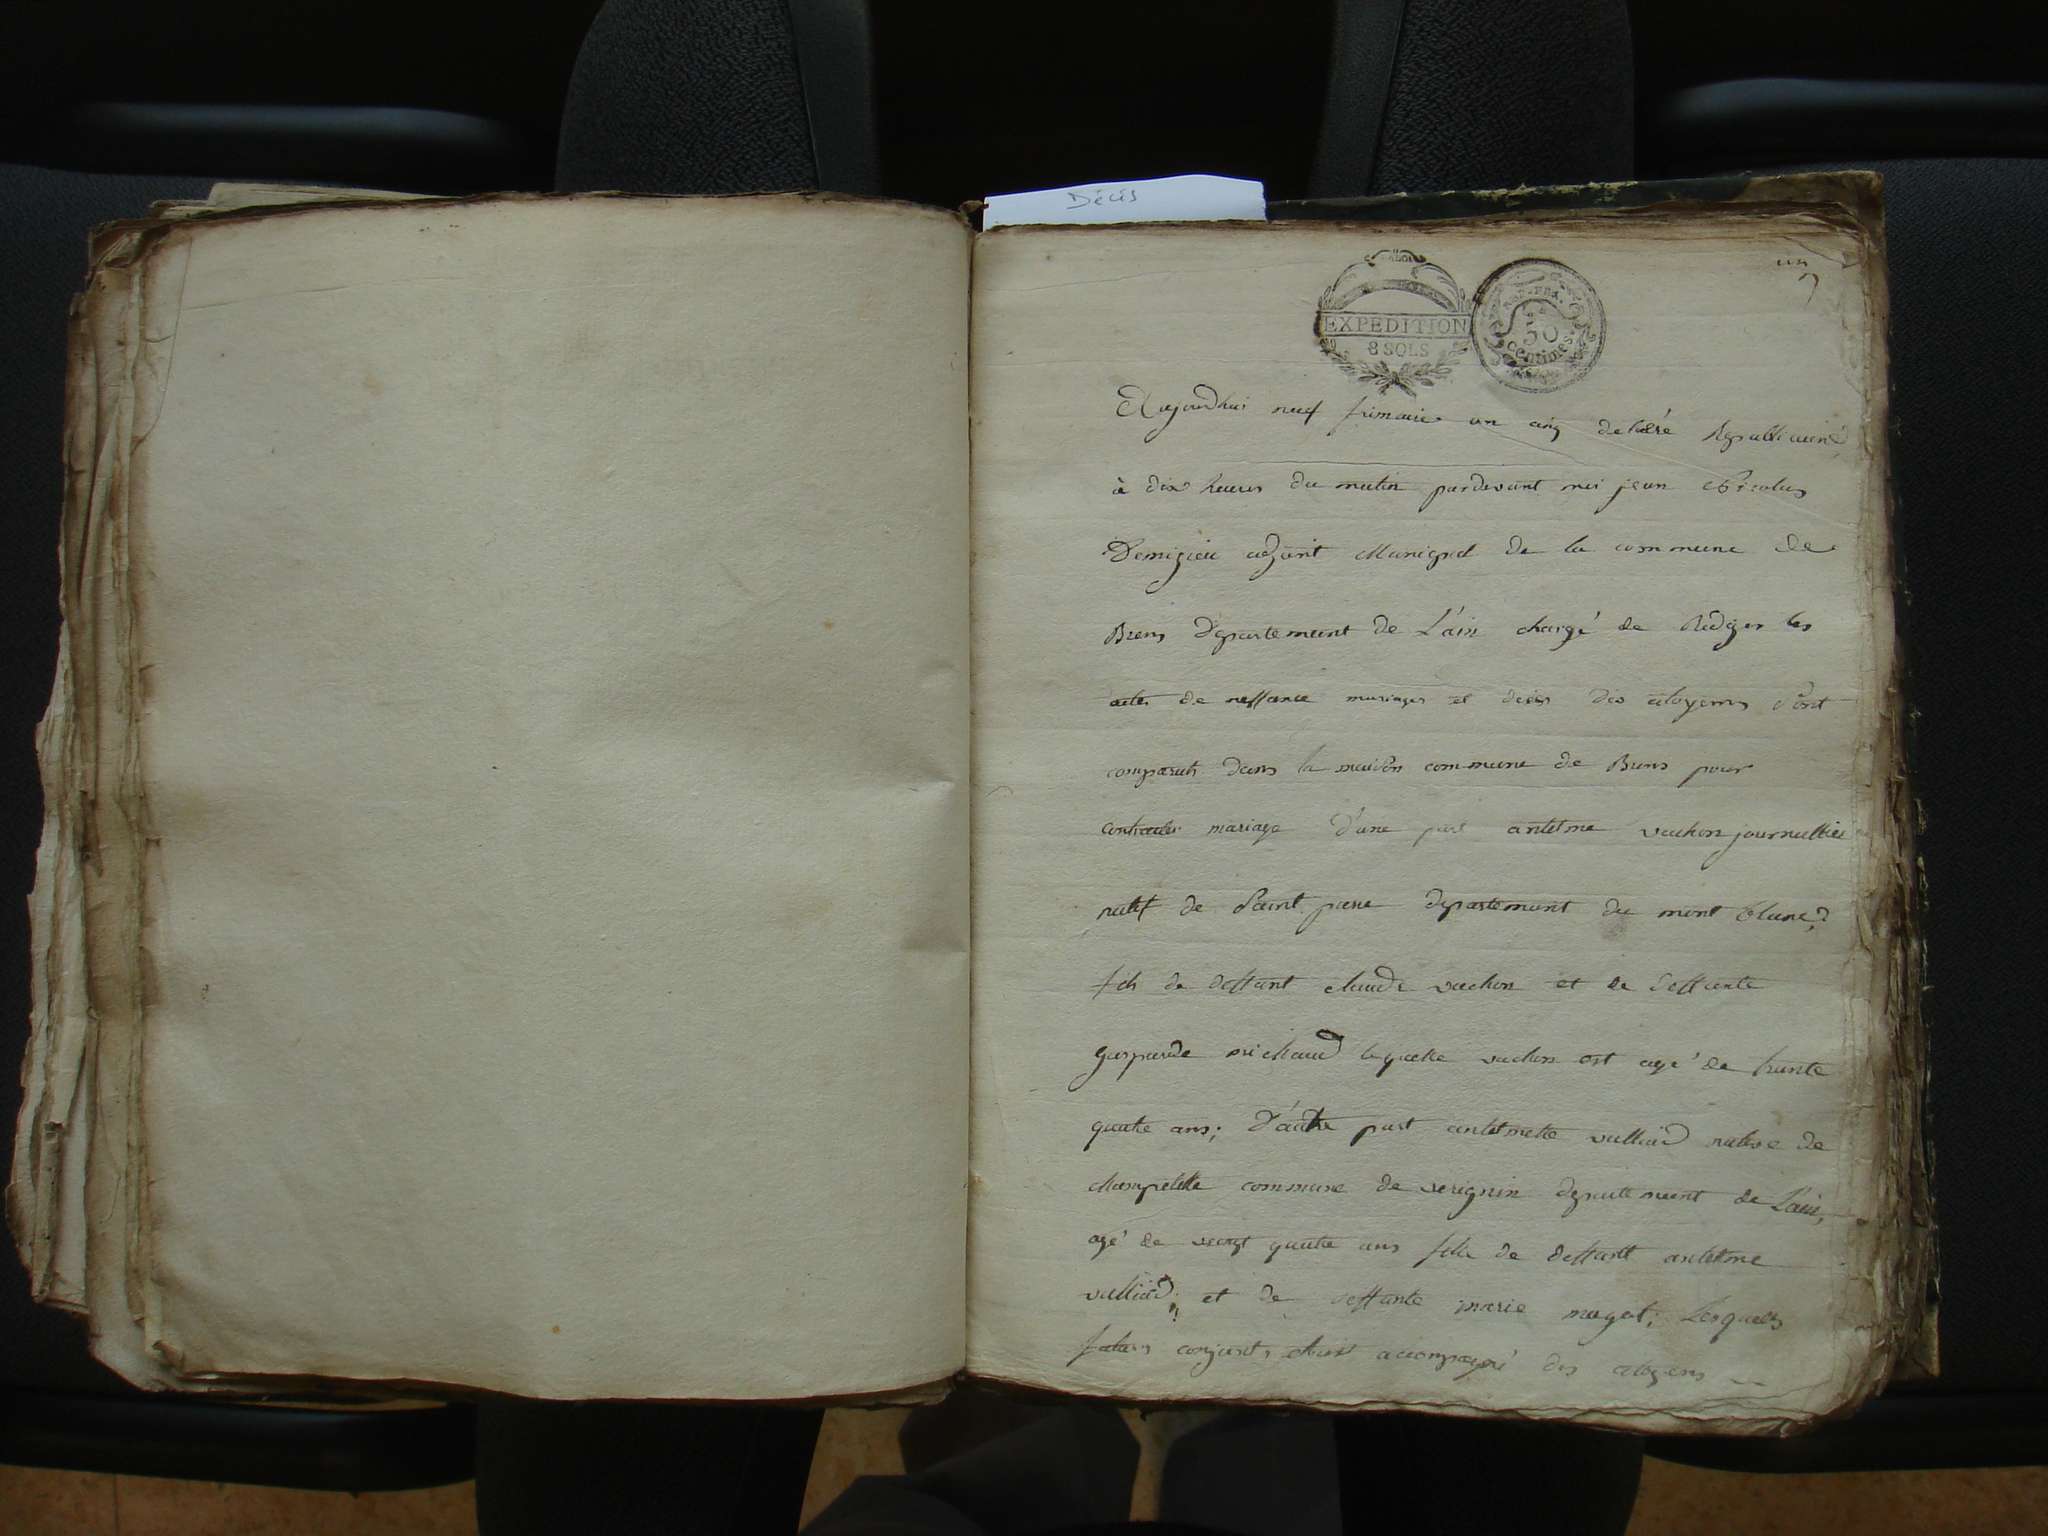 Décés
un
EXPEDITION
8 SOLS
REP. FRA.
50
centimes
Aujourdhui neuf frimaire an cinq de l'ére Republicaine
à dix heures du matin pardevant moi jean Nicolas
Demizieu adjoint Municipal de la commune de
Brens Departement de L'ain chargé de Rediger les
actes de nessance mariages et decés des citoyens Sont
comparuts dans la maison commune de Brens pour
contracter mariage D'une part antelme vachon journallier
natif de Saint piere departement du mont blanc
fils de deffunt claude vachon et de deffunte
gasparde michaud lequelle vachon est agé de trente
quatre ans; D'autre part antelmette valliad native de
champetelle commune de verignin departement de L'ain,
agé de veingt quatre ans fille de deffunt antelme
valliad; et de deffunte marie magat; Lesquels
futurs conjoints etoint accompagné des citoyens